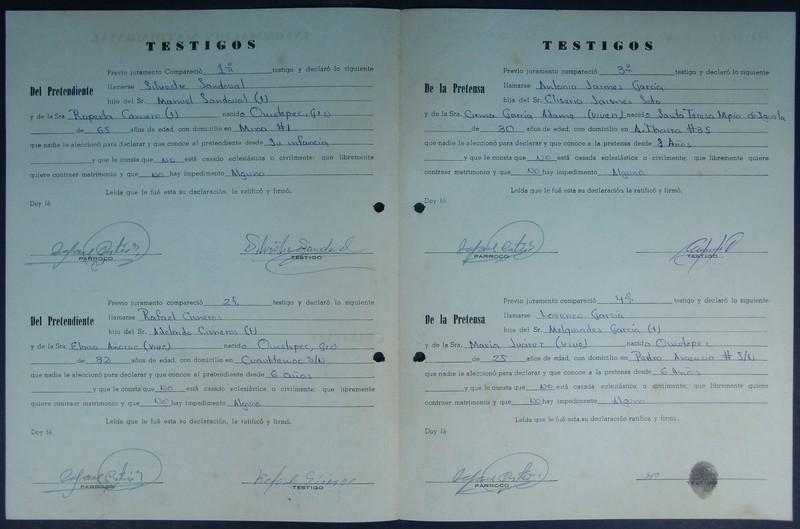 TESTIGOS
Previo juramento Compareció 1º testigo y declaró lo siguiente
Del Pretendiente
llamarse Silvestre Sandoval
hijo del Sr. Manuel Sandoval (†)
y de la Sra. Ruperta (†) nacido Ometepec, Gro
de 65 años de edad, con domicilio en Mina #1
que nadie le aleccionó para declarar y que conoce al pretendiente desde Su infancia
y que le consta que NO está casado eclesiástica o civilmente; que libremente
quiere contraer matrimonio y que NO hay impedimento Alguno
Leída que le fué esta su declaración, la ratificó y firmó.
Doy fé
Rafael
Silvestre Sandoval
PARROCO
TESTIGO
Previo juramento compareció 2º testigo y declaró lo siguiente
Del Pretendiente
llamarse Rafael Cisneros
hijo del Sr. Adelaido Cisneros (†)
y de la Sra. Eloisa (vive) nacido Ometepec, Gro
de 32 años de edad, con domicilio en Cuauhtemoc S/N
que nadie le aleccionó para declarar y que conoce al pretendiente desde 6 años
y que le consta que NO está casado eclesiástica o civilmente; que libremente
quiere contraer matrimonio y que NO hay impedimento Alguno
Leída que le fué esta su declaración, la ratificó y firmó.
Doy fé
Rafael
Rafael
PARROCO
TESTIGO
TESTIGOS
Previo juramento compareció 3º testigo y declaró lo siguiente
De la Pretensa
llamarse Antonia Jaimes García
hijo del Sr. Jaimes Soto
y de la Sra. García Adame (viven) nacido Santa Teresa Mpio de Iguala
de 30 años de edad, con domicilio en A. Ibarra #35
que nadie le aleccionó para declarar y que conoce a la pretensa desde 2 Años
y que le consta que NO está casada eclesiástica o civilmente; que libremente quiere
contraer matrimonio y que NO hay impedimento Alguno
Leída que le fué esta su declaración la ratificó y firmó.
Doy fé
Rafael
PARROCO
TESTIGO
Previo juramento compareció 4º testigo y declaró lo siguiente
De la Pretensa
llamarse Lorenzo García
hijo del Sr. Melquiades García (†)
y de la Sra. María Juárez (vive) nacido Ometepec
de 25 años de edad, con domicilio en Pedro Ascencio # S/N
que nadie le aleccionó para declarar y que conoce a la pretensa desde 6 Años
y que le consta que NO está casada eclesiástica o civilmente; que libremente quiere
contraer matrimonio y que NO hay impedimento Alguno
Leída que le fué esta su declaración ratifica y firma.
Doy fé
Rafael
no
PARROCO
TESTIGO